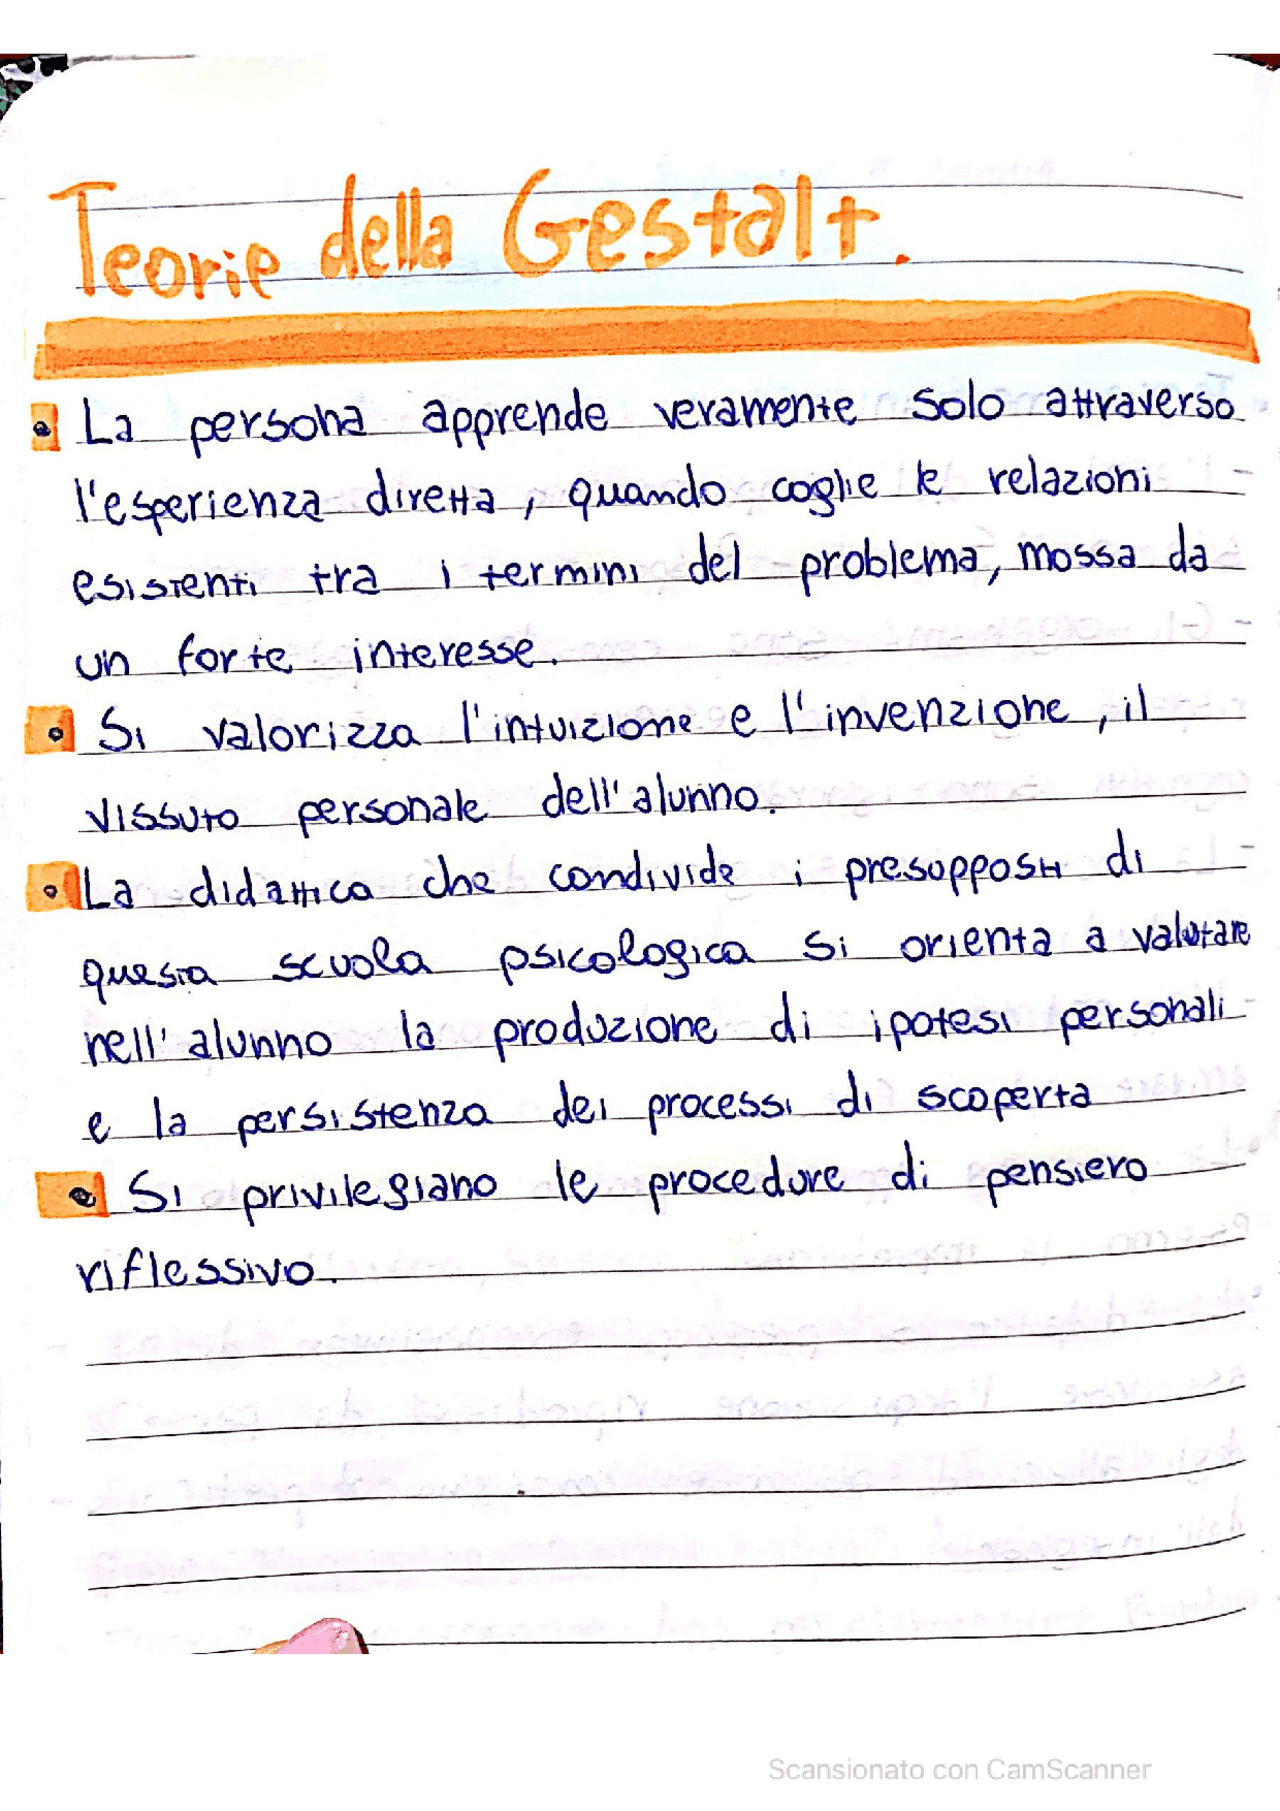 Teorie della Gestalt.
La persona apprende veramente solo attraverso
l'esperienza diretta, quando coglie le relazioni
esistenti tra i termini del problema, mossa da
un forte interesse.
Si valorizza l'intuizione e l'invenzione, il
vissuto personale dell'alunno.
La didattica che condivide i presupposti di
questa scuola psicologica si orienta a valutare
nell'alunno la produzione di ipotesi personali
e la persistenza dei processi di scoperta
Si privilegiano le procedure di pensiero
riflessivo.
Scansionato con CamScanner